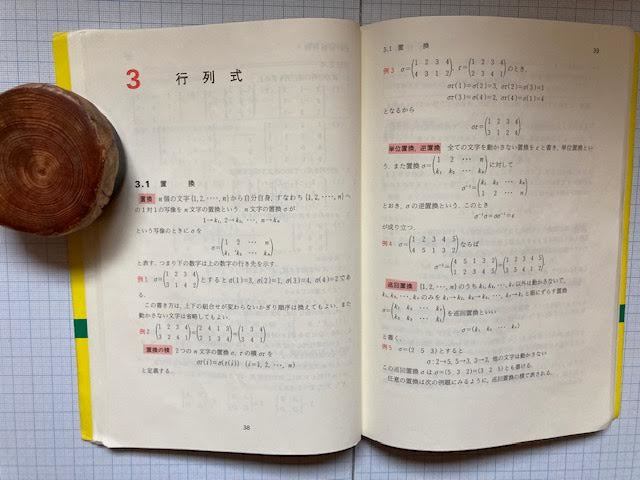 3 行 列 式
3.1 置 換
置換 n個の文字{1, 2, …, n}から自分自身, すなわち{1, 2, …, n}へ
の1対1の写像をn文字の置換という. n文字の置換σが
1→k₁, 2→k₂, …, n→kₙ
という写像のときにσを
σ=(1 2 … n
k₁ k₂ … kₙ)
と表す. つまり下の数字は上の数字の行き先を示す.
例1 σ=(1 2 3 4
3 1 4 2)とするとσ(1)=3, σ(2)=1, σ(3)=4, σ(4)=2であ
る.
この書き方は, 上下の組合せが変わらないかぎり順序は換えてもよい. また
動かさない文字は省略してもよい.
例2
置換の積 2つのn文字の置換σ, τの積στを
στ(i)=σ(τ(i)) (i=1, 2, …, n)
と定義する.
38
3.1 置 換 39
例3 σ=(1 2 3 4
4 3 1 2), τ=(1 2 3 4
2 3 4 1)のとき,
στ(1)=σ(2)=3, στ(2)=σ(3)=1
στ(3)=σ(4)=2, στ(4)=σ(1)=4
となるから
στ=(1 2 3 4
3 1 2 4)
単位置換, 逆置換 全ての文字を動かさない置換をεと書き, 単位置換とい
う. また置換σ=(1 2 … n
k₁ k₂ … kₙ)に対して
σ⁻¹=(k₁ k₂ … kₙ
1 2 … n)
とおき, σの逆置換という. このとき
σ⁻¹σ=σσ⁻¹=ε
が成り立つ.
例4 σ=(1 2 3 4 5
4 5 1 3 2)ならば
σ⁻¹=(4 5 1 3 2
1 2 3 4 5)=(1 2 3 4 5
3 5 4 1 2)
巡回置換 {1, 2, …, n}のうちk₁, k₂, …, kᵣ以外は動かさないで,
k₁, k₂, …, kᵣのみをk₁→k₂, k₂→k₃, …, kᵣ→k₁と順にずらす置換
を巡回置換といい
σ=(k₁ k₂ … kᵣ)
と書く.
例5 σ=(2 5 3)とすると
σ:2→5, 5→3, 3→2, 他の文字は動かさない
この巡回置換σはσ=(5 3 2)=(3 2 5)とも書ける.
任意の置換は次の例題にみるように, 巡回置換の積で表される.